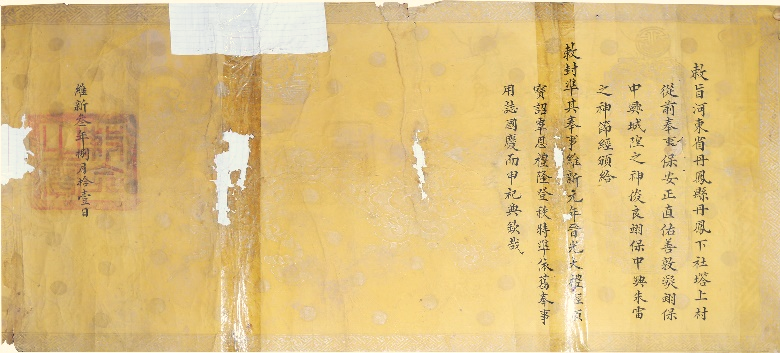 敕旨河東省丹鳳縣丹鳳下社塔上村
從前奉事保安正直佑善敦凝翊保
中興城隍之神俊良翊保中興朱雷
之神節經頒給
敕封準其奉事維新元年晉光大禮經頒
寶詔覃恩禮隆登秩特準依舊奉事
用誌國慶而申祀典欽哉
維新叁年捌月拾壹日